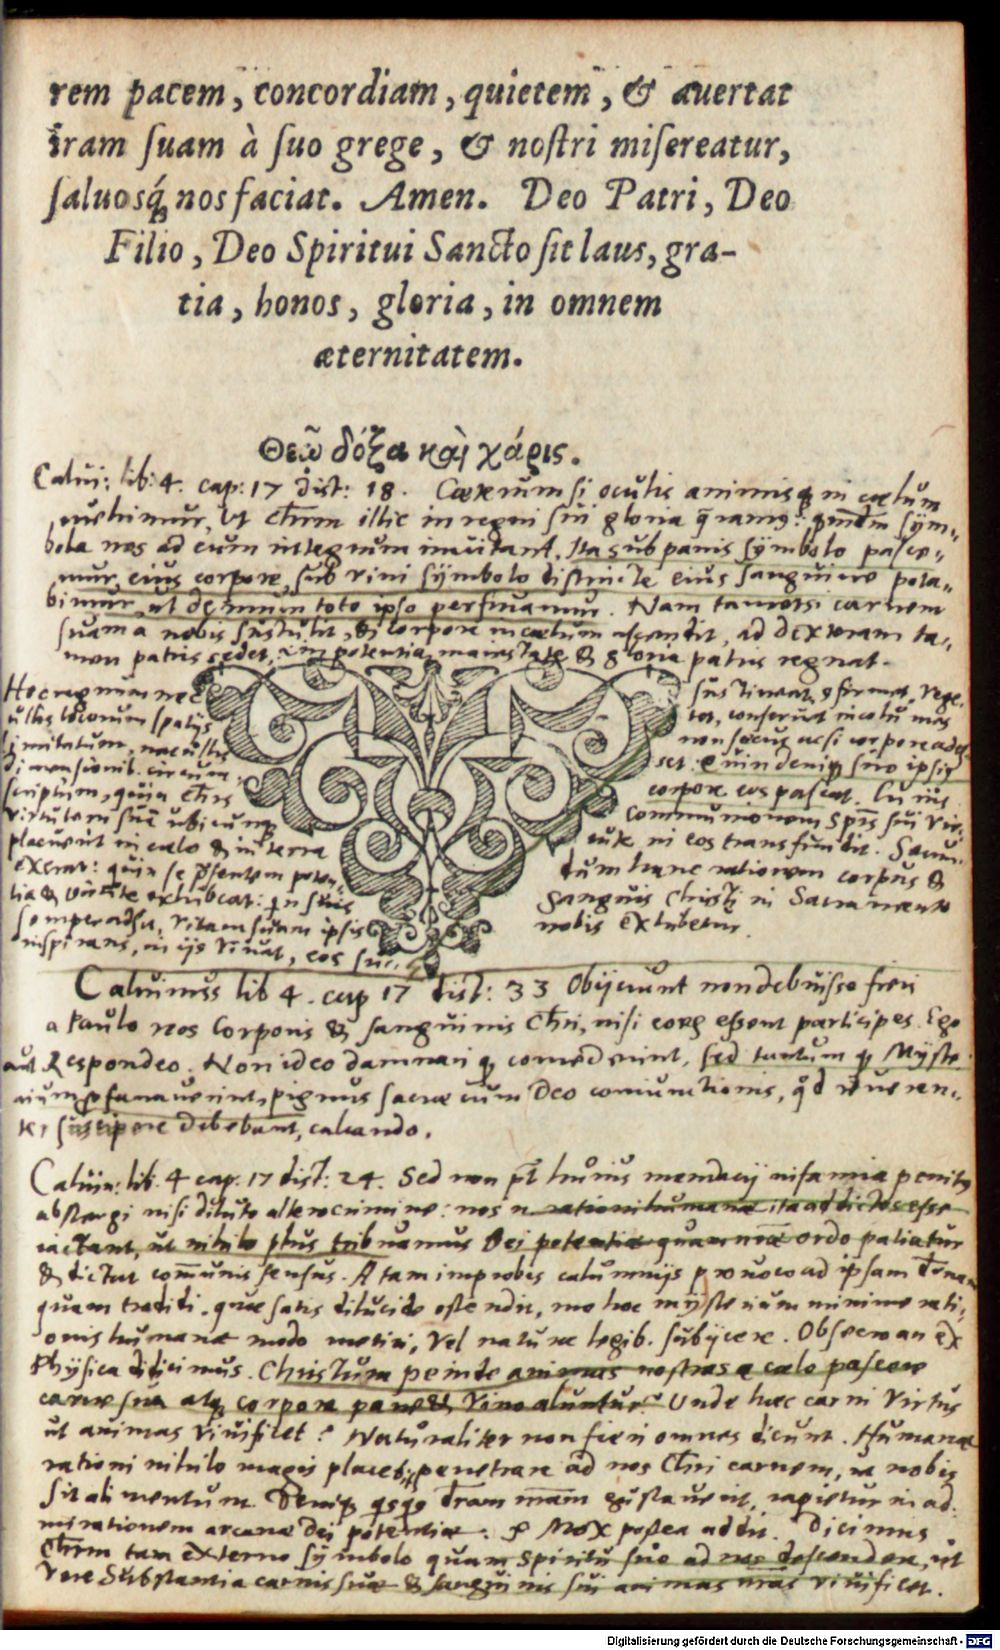 rem pacem, concordiam, quietem, & auertat
iram suam à suo grege, & nostri misereatur,
saluosq́; nos faciat. Amen. Deo Patri, Deo
Filio, Deo Spiritui Sancto sit laus, gra-
tia, honos, gloria, in omnem
æternitatem.
Θεῷ δόξα καὶ χάρις.
Calui: lib: 4. cap: 17 dist: 18. Cæterum si oculis animisq; in cœlum
euehimur, Ut Chrm illic in regni sui gloria q̄ramus: sÿm-,
bola nos ad eum integrum inuitant, Ita sub panis sÿmbolo pasce-,
mur eius corpore, sub vini sÿmbolo distincte eius sanguine pota-,
bimur, ut demum toto ipso perfruamur. Nam tametsi carnem
suam a nobis sustulit, & corpore in cœlum ascendit, ad dexteram ta-,
men patris sedet, in potentia, maiestate & gloria patris regnat.
Hoc regnum nec
ullis locorum spatijs
limitatum, nec ullis
dimensionib. circum
scriptum, quin Chrs
virtutem suā ubicunq;
placuerit in cœlo & in terra
exerat: quin se p̄sentem poten-,
tia & virtute exhibeat: qn suis
semper adsit, vitam suam ipsis
inspirans, in ijs viuat, eos
sustineat, cōfirmet, vege-
tet, conseruet incolumes
non secus acsi corpore ades-
set. quin deniq; suo ipsiȝ
corpore eos pascat. Cuius
Communionem Spūs sui vir-
tute in eos transfundit. Secun-
dum hanc rationem corpus &
sanguis Christi in Sacramento
nobis exhibetur.
Caluinus lib 4. cap 17 dist: 33 Obijciunt non debuisse fieri
a Paulo reos Corporis & sanguinis Chri, nisi eorū essent participes. Ego
aut Respondeo. Non ideo damnari q; comederint, sed tantum q; Mÿste
rium p̄fanauerint, pignus sacræ cum Deo coniunctionis, q̊d reueren-,
ter suscipere debebant, calcando.
Caluin: lib. 4 cap. 17 dist: 24. Sed non p̄t huius mendacij infamia penitȝ
abstergi nisi diluto altero crimine: nos n. rationi humanæ ita addictos esse
iactant, ut nihilo plus tribuamus Dei potentiæ quam nr̄æ ordo patiatur
& dictat com̄unis sensus. A tam improbis calumnijs prouoco ad ipsam
quam tradidi. quæ satis dilucide ostendit, me hoc mÿsterium minime rati-,
onis humanæ modo metiri, vel naturæ legib. subijcere. Obsecro an ex
Phÿsica didicimus. Christum perinde animas nostras e cælo pascere
carne sua atq; corpora pane & vino aluntur? Unde hæc carni Virtus
ut animas viuificet? Naturaliter non fieri omnes dicunt. Humanæ
rationi nihilo magis placebit penetrare ad nos Chri carnem, ut nobis
sit alimentum. Deniq; nr̄am gustauerit, rapietur in ad-
mirationem arcanæ Dei potentiæ: & Mox postea addit. Dicimus
Chrm tam externo sÿmbolo quam spiritu suo ad nos descendere, ut
vere Substantia carnis suæ & sanguinis sui animas nr̄as viuificet.
Digitalisierung gefördert durch die Deutsche Forschungsgemeinschaft - DFG